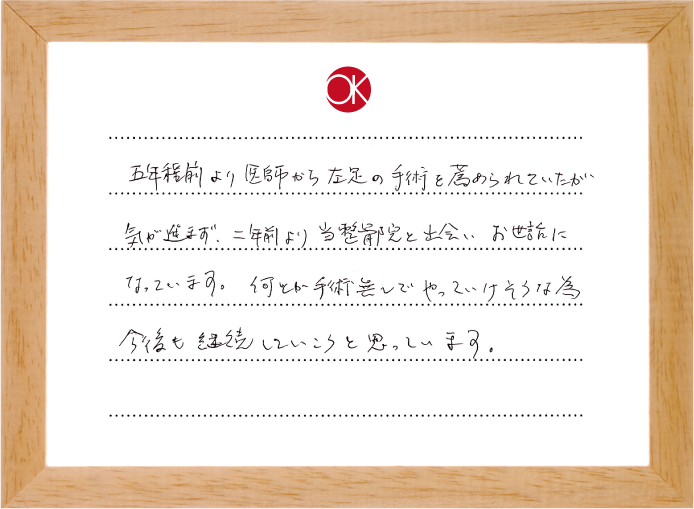 OK
五年程前より医師から左足の手術を薦められていたが
気が進まず、二年前より当整骨院と出会い お世話に
なっています。 何とか手術無しでやっていけそうな為
今後も継続していこうと思っています。